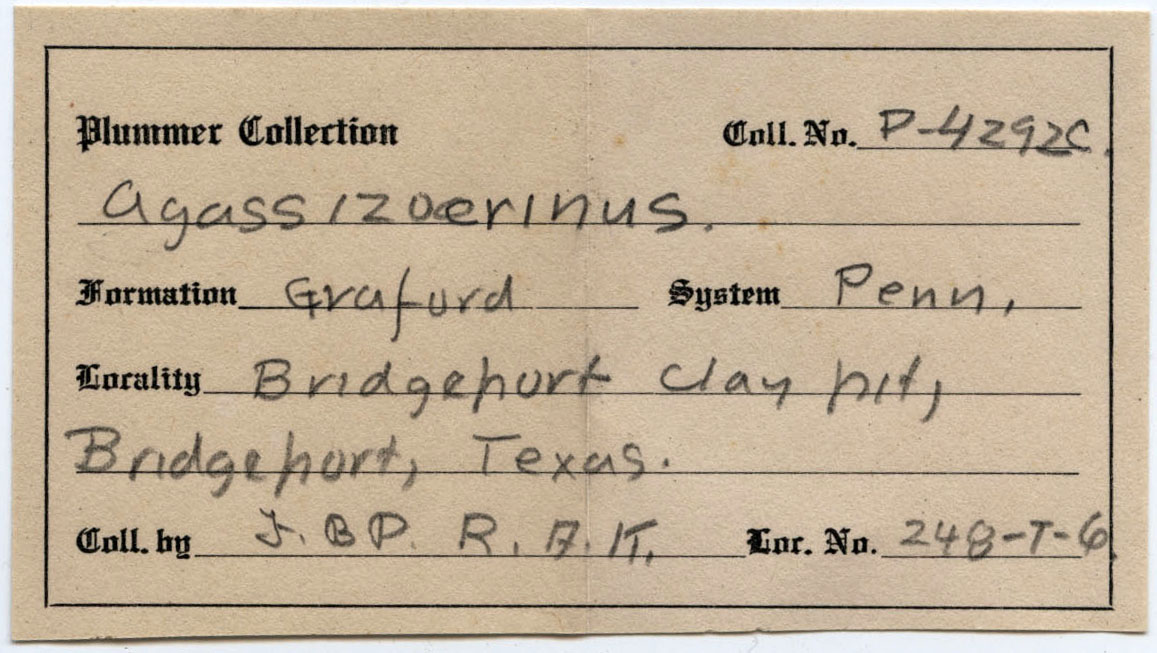 Plummer Collection Coll. No. P-4292c.
Agassizocrinus.
Formation Graford System Penn.
Locality Bridgeport Clay pit,
Bridgeport, Texas.
Coll. by F. B P. R. A. K. Loc. No. 248-T-6.